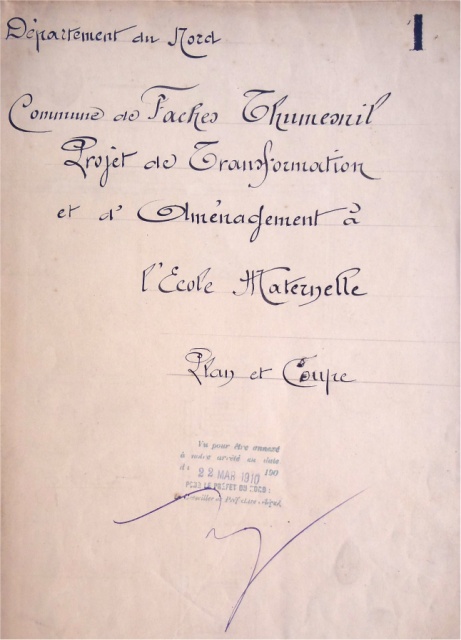 Département du Nord
I
Commune de Faches Thumesnil
Projet de Transformation
et d' Aménagement à
l'Ecole Maternelle
Plan et Coupe
Vu pour être annexé
à notre arrêté en date
de 190
22 MAR 1910
POUR LE PRÉFET DU NORD:
Le Conseiller de Préfecture